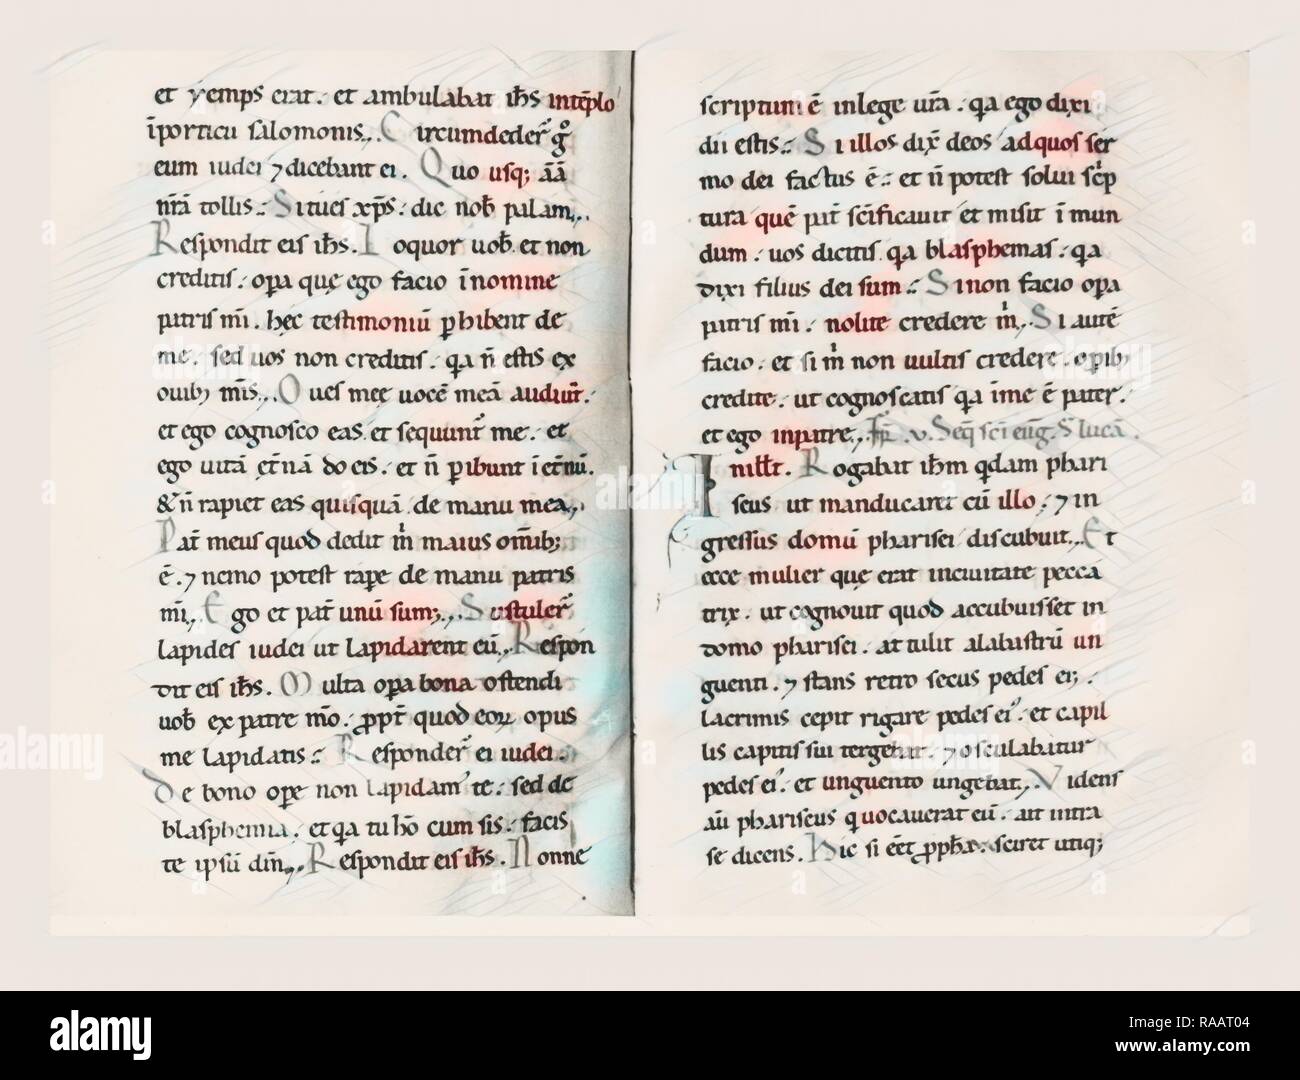 et yemps erat. et ambulabat ih̄s intēplo
īporticu salomonis. Circumdeder̄ g̊
eum iudei ⁊ dicebant ei. Quo usq; āiā
nr̄ā tollis. Si tu es xp̄s. dic nob̄ palam.
Respondit eis ih̄s. Loquor uob̄ et non
creditis. oꝑa que ego facio īnomine
patris m̄i. hęc testimoniū ꝑhibent de
me. sed uos non creditis. qa n̄ estis ex
ouib; m̄is. Oues mee uocē meā audiūt.
et ego cognosco eas et sequunt᷑ me. et
ego uitā et̄nā do eis. et n̄ ꝑibunt ī et̄nū.
& n̄ rapiet eas quisquā de manu mea.
Pat̄ meus quod dedit m̄ maius om̄ib;
ē. ⁊ nemo potest rape de manu patris
m̄i. Ego et pat̄ unū sum; Sustuler̄
lapides iudei ut lapidarent eū. Respon
dit eis ih̄s. Multa oꝑa bona ostendi
uob̄ ex patre m̄o. ꝓpt̄ quod eoꝝ opus
me lapidatis. Responder̄ ei iudei.
De bono oꝑe non lapidam᷒ te. sed de
blasphemia. et qa tu hō cum sis. facis
te ipsū dm̄. Respondit eis ih̄s. Nonne
scriptum ē inlege ur̄a. qa ego dixi
dii estis. Si illos dix̄ deos adquos ser
mo dei factus ē. et n̄ potest solui sc̄p
tura quē pat̄ sc̄ificauit et misit ī mun
dum. uos dicitis qa blasphemas. qa
dixi filius dei sum. Si non facio oꝑa
patris m̄i. nolite credere m̄. Si autē
facio. et si m̄ non uultis credere. oꝑib;
credite. ut cognoscatis qa ī me ē pater.
et ego inpatre. .v. Seq̄ sc̄i euḡ. S lucā.
Inillt̄. Rogabat ih̄m qdam phari
seus ut manducaret cū illo. ⁊ in
gressus domū pharisei discubuit. Et
ecce mulier que erat inciuitate pecca
trix. ut cognouit quod accubuisset in
domo pharisei. attulit alabastrū un
guenti. ⁊ stans retro secus pedes ei;
lacrimis cepit rigare pedes ei᷒. et capil
lis capitis sui tergebat. ⁊ osculabatur
pedes ei᷒. et unguento ungebat. Videns
aū phariseus q uocauerat eū. ait intra
se dicens. Hic si eēt ꝓpha. sciret utiq;
alamy
Image ID: RAAT04
www.alamy.com